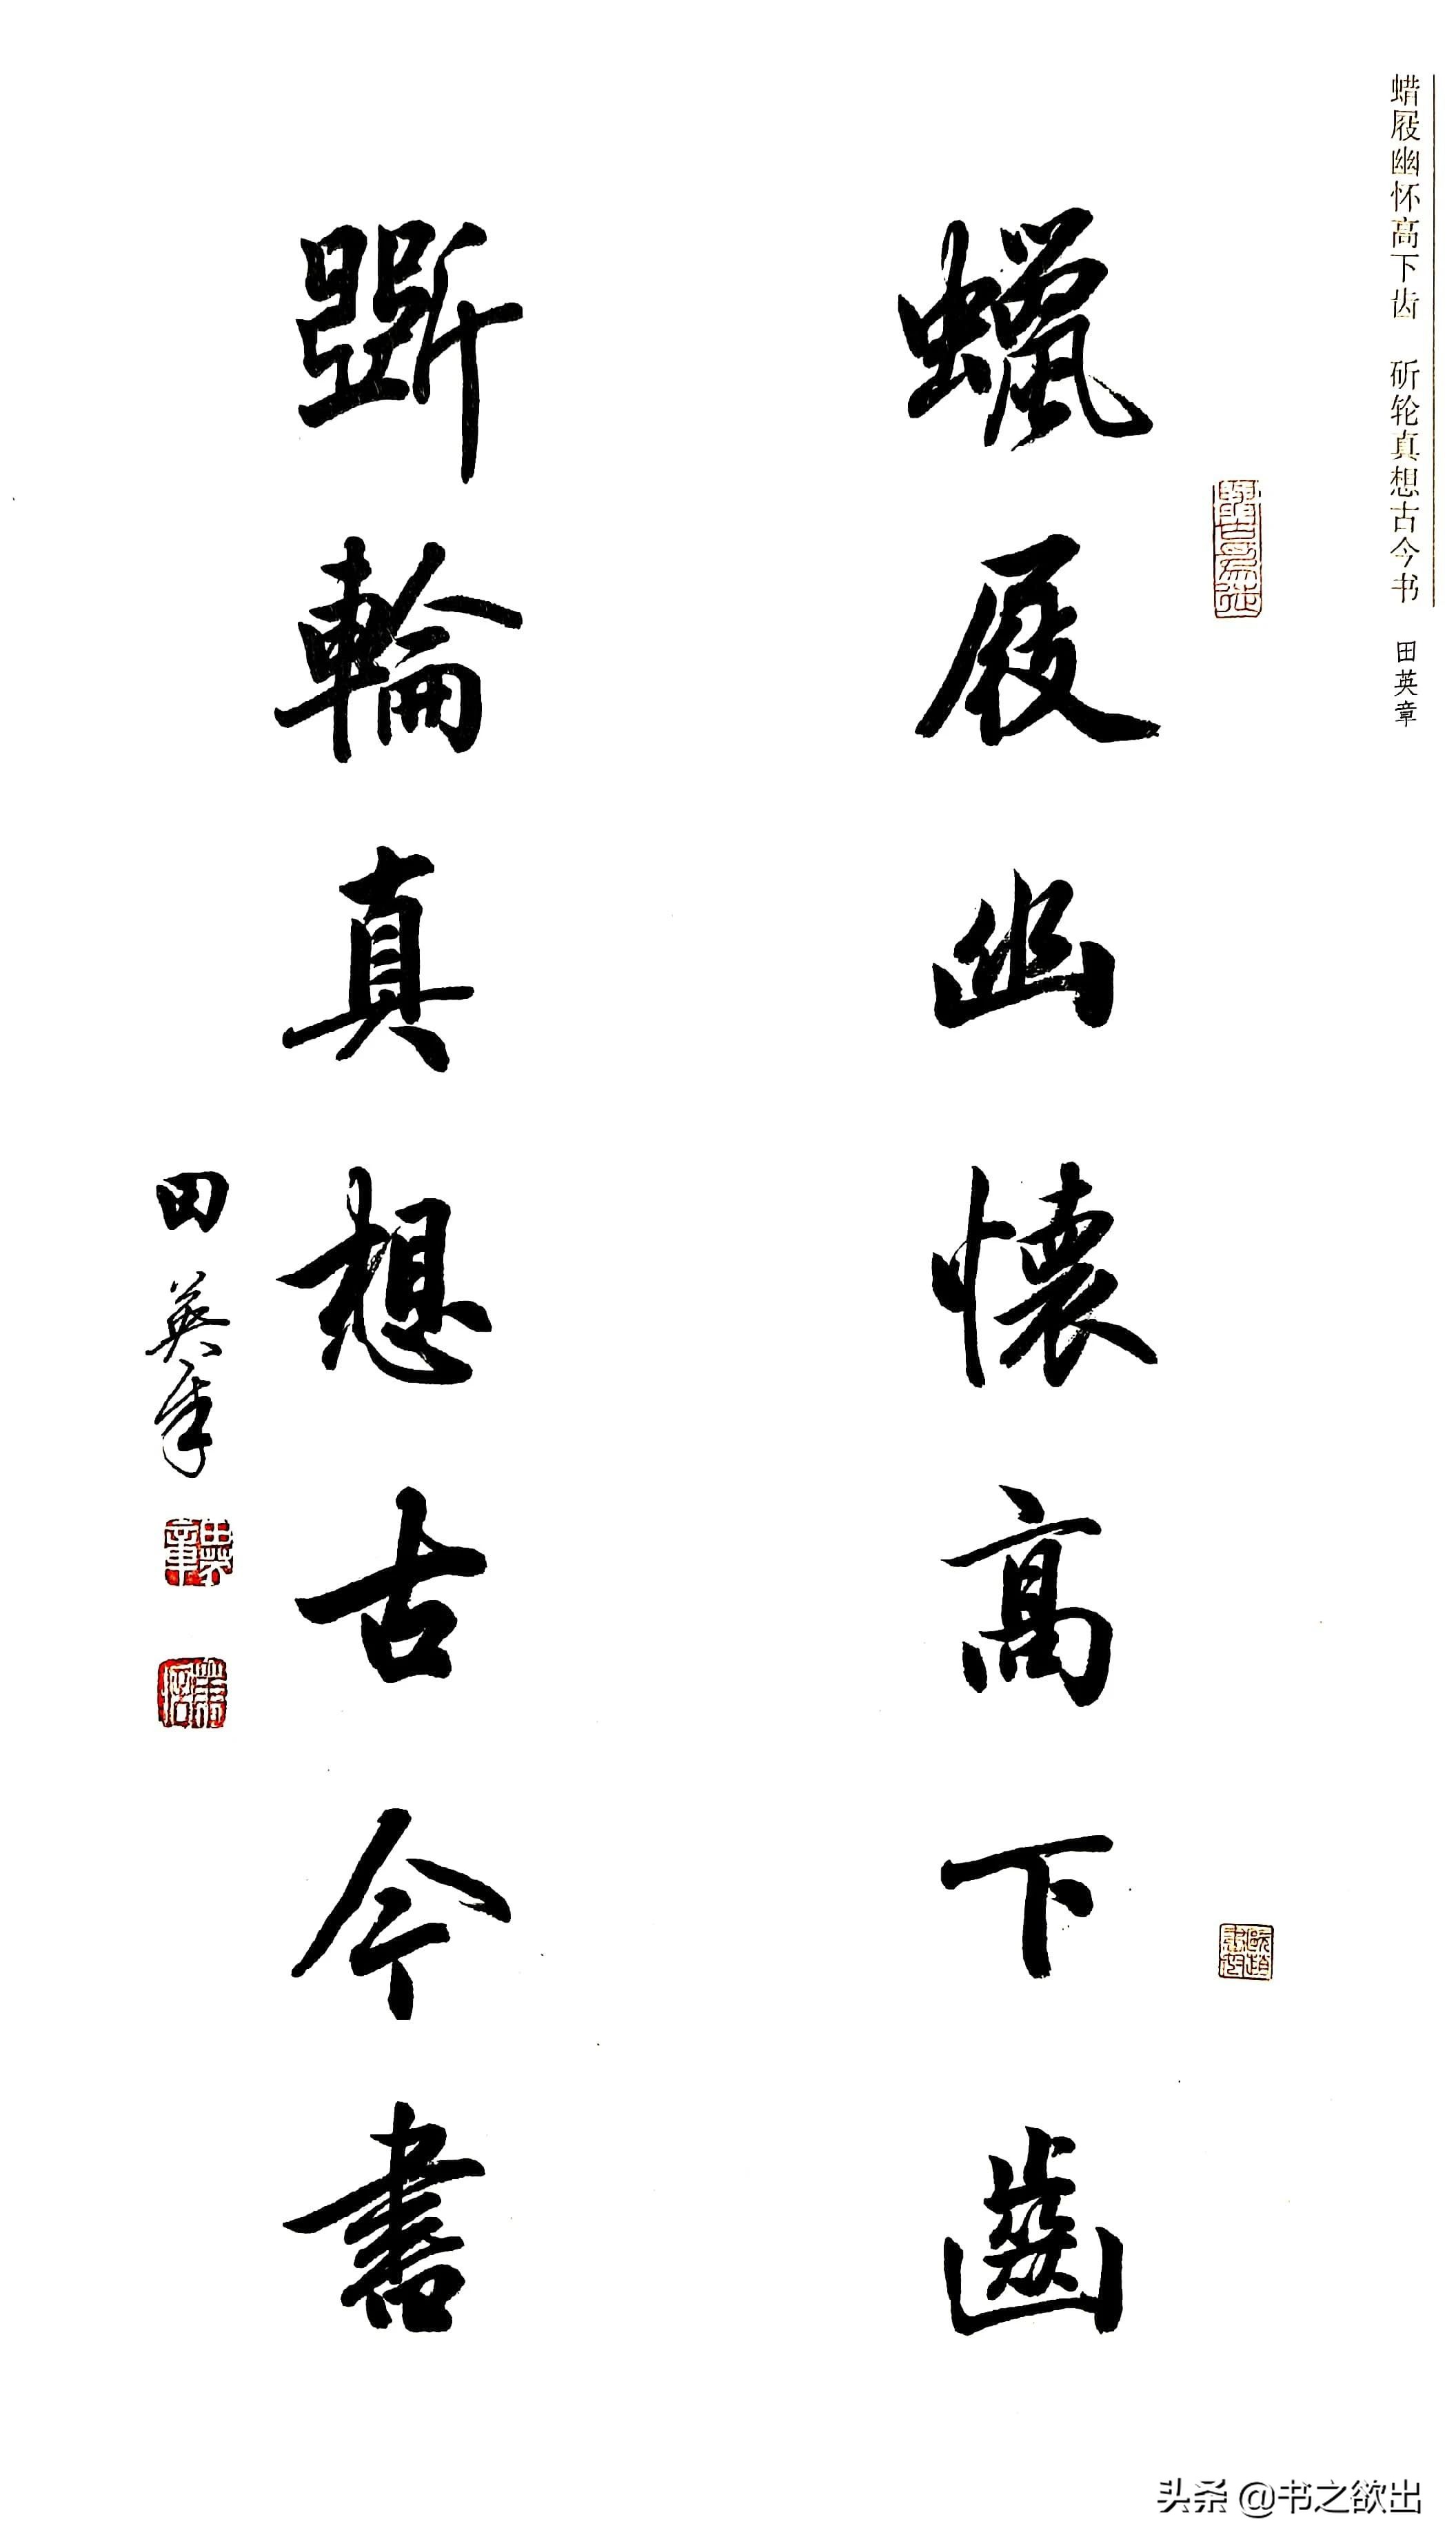 蜡屐幽怀高下齿 斫轮真想古今书 田英章
蠟屐幽懷高下齒
斲輪真想古今書
田英章
田英章
头条 @书之欲出